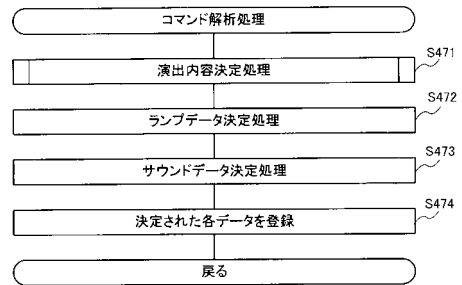 コマンド解析処理
S471
演出内容決定処理
S472
ランプデータ決定処理
S473
サウンドデータ決定処理
S474
決定された各データを登録
戻る